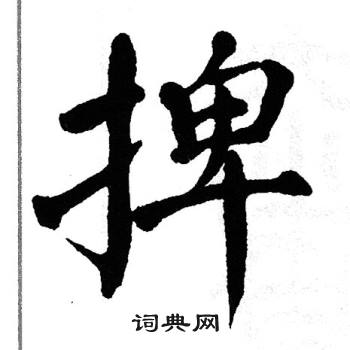 捭
词典网